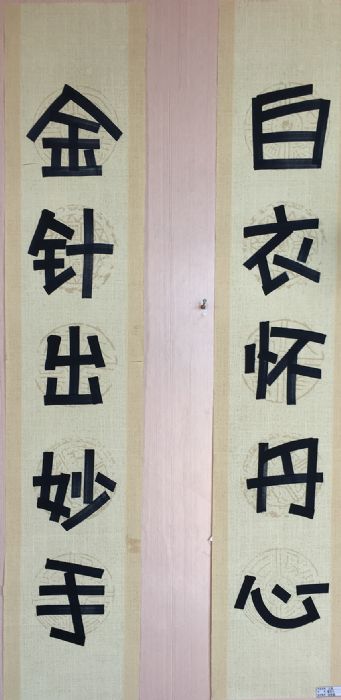 白衣怀丹心
金针出妙手